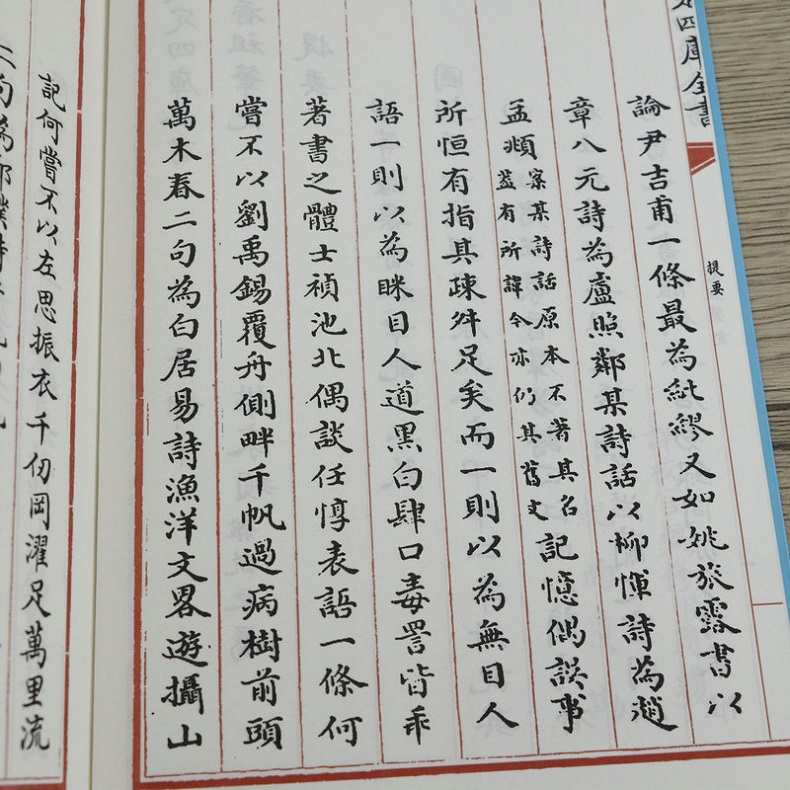 四庫全書
提要
論尹吉甫一條最為紕繆又如姚旅露書以
章八元詩為盧照鄰某詩話以柳惲詩為趙
孟頫案某詩話原本不著其名蓋有所諱今亦仍其舊文記憶偶誤事
所恒有指其疎舛足矣而一則以為無目人
語一則以為眯目人道黑白肆口毒詈皆乖
著書之體士禎池北偶談任惇表語一條何
嘗不以劉禹錫覆舟側畔千帆過病樹前頭
萬木春二句為白居易詩漁洋文畧遊攝山
記何嘗不以左思振衣千仞岡濯足萬里流
二句為郭璞詩